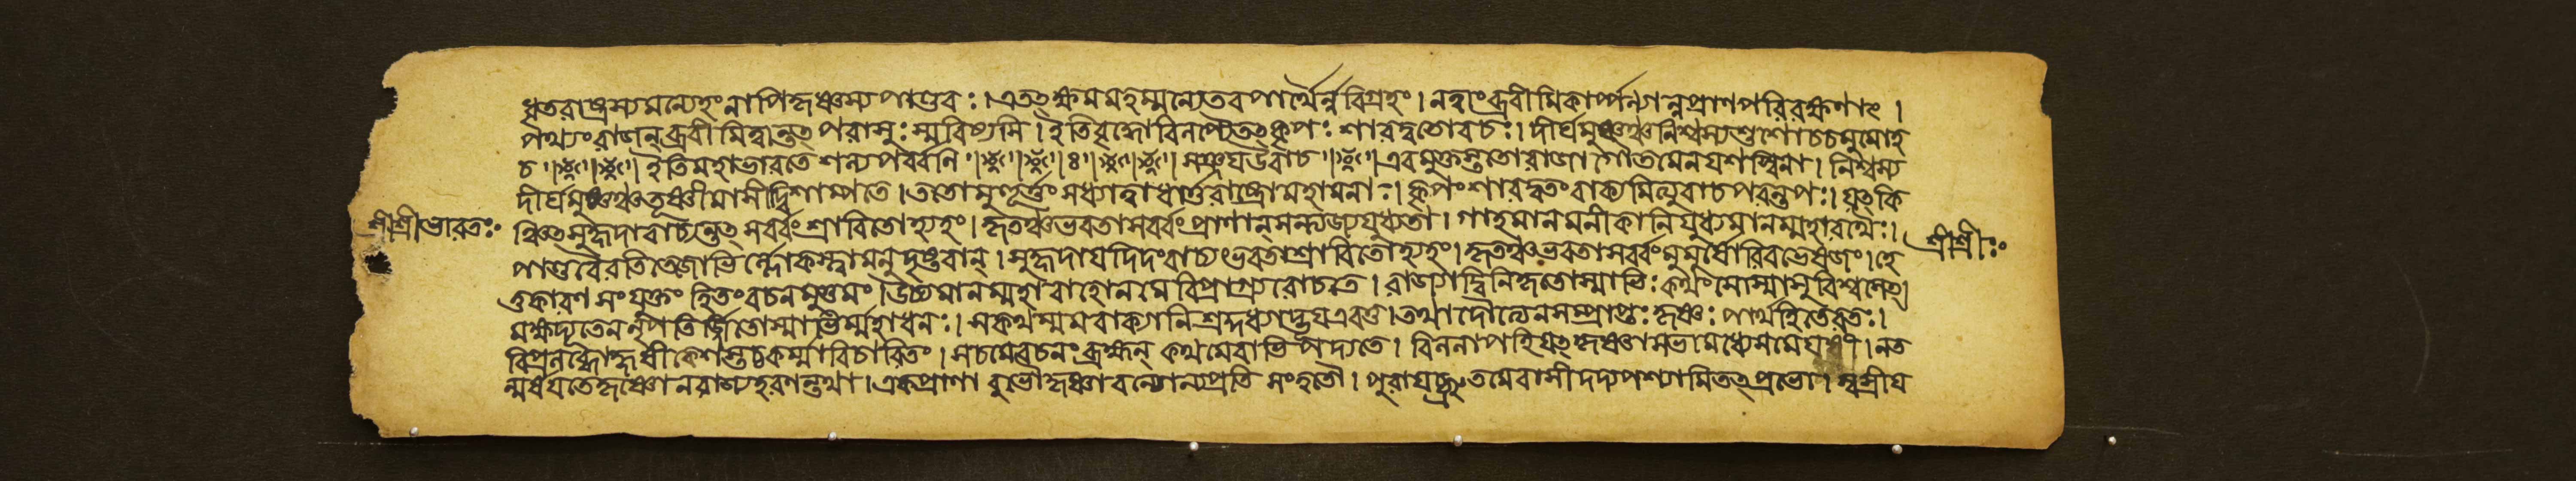 ধৃতরাষ্ট্রস্যমন্যেহংনাপিকৃষ্ণস্যপাণ্ডবঃ। এতত্ক্ষমমহম্মন্যেতবপার্থৈর্ন্নবিগ্রহং। নত্বাংব্রবীমিকার্পণ্যান্নপ্রাণপরিরক্ষণাৎ।
পথ্যংরাজন্ব্রবীমিত্বান্তত্পরাসুঃস্মরিষ্যসি। ইতিবৃদ্ধোবিলপ্যৈতত্কৃপঃশারদ্বতোবচঃ। দীর্ঘমুষ্ণঞ্চনিশ্বস্যশুশোচচমুমোহ
চ।। ইতিমহাভারতেশল্যপর্ব্বনি।।৪।। সঞ্জয়উবাচ।। এবমুক্তস্ততোরাজাগৌতমেনযশস্বিনা। নিশ্বস্য
দীর্ঘমুষ্ণঞ্চতূষ্ণীমাসীদ্বিশাম্পতে। ততোমুহূর্ত্তংসধ্যাত্বাধার্ত্তরাষ্ট্রোমহামনাঃ। কৃপংশারদ্বতংবাক্যমিত্যুবাচপরন্তপঃ। যত্কি
শ্রীশ্রীভারতঃ
ঞ্চিত্সুহৃদাবাচ্যন্তত্সর্ব্বংশ্রাবিতোহ্যহং। কৃতঞ্চভবতাসর্ব্বংপ্রাণান্সন্ত্যজ্যযুধ্যতা। গাহমানমনীকানিযুধ্যমানম্মহারথৈঃ।
শ্রীশ্রীঃ
পাণ্ডবৈরতিতেজোভির্ল্লোকস্ত্বামনুদৃষ্টবান্। সুহৃদাযদিদংবাচ্যংভবতাশ্রাবিতোহ্যহং। কৃতঞ্চভবতাসর্ব্বংমুমূর্ষোরিবভেষজং। হে
তুকারণসংযুক্তংহিতংবচনমুত্তমং। উচ্যমানম্মহাবাহোনমেবিপ্রাগ্র্যরোচতে। রাজ্যাদ্বিনিকৃতোস্মাভিঃকথংসোস্মাসুবিশ্বসেৎ।
মক্ষদ্যূতেননৃপতির্জ্জিতোস্মাভির্ম্মহাধনঃ। সকথম্মমবাক্যানিশ্রদ্দধ্যাদ্ভূয়এবতু। তথাদৌত্যেনসম্প্রাপ্তঃকৃষ্ণঃপার্থহিতেরতঃ।
বিপ্রলব্ধোহৃষীকেশস্তচ্চকর্ম্মাবিচারিতং। সচমেবচনংব্রহ্মন্কথমেবাভিপদ্যতে। বিললাপহিযত্কৃষ্ণাসভামধ্যেসমেয়ুষী। নত
ন্মর্ষয়তেকৃষ্ণোনরাজ্যহরণন্তথা। একপ্রাণাবুভৌকৃষ্ণাবন্যোন্যপ্রতিসংহতৌ। পুরাযচ্ছ্রুতমেবাসীদদ্যপশ্যামিতত্প্রভো। স্বস্রীয়